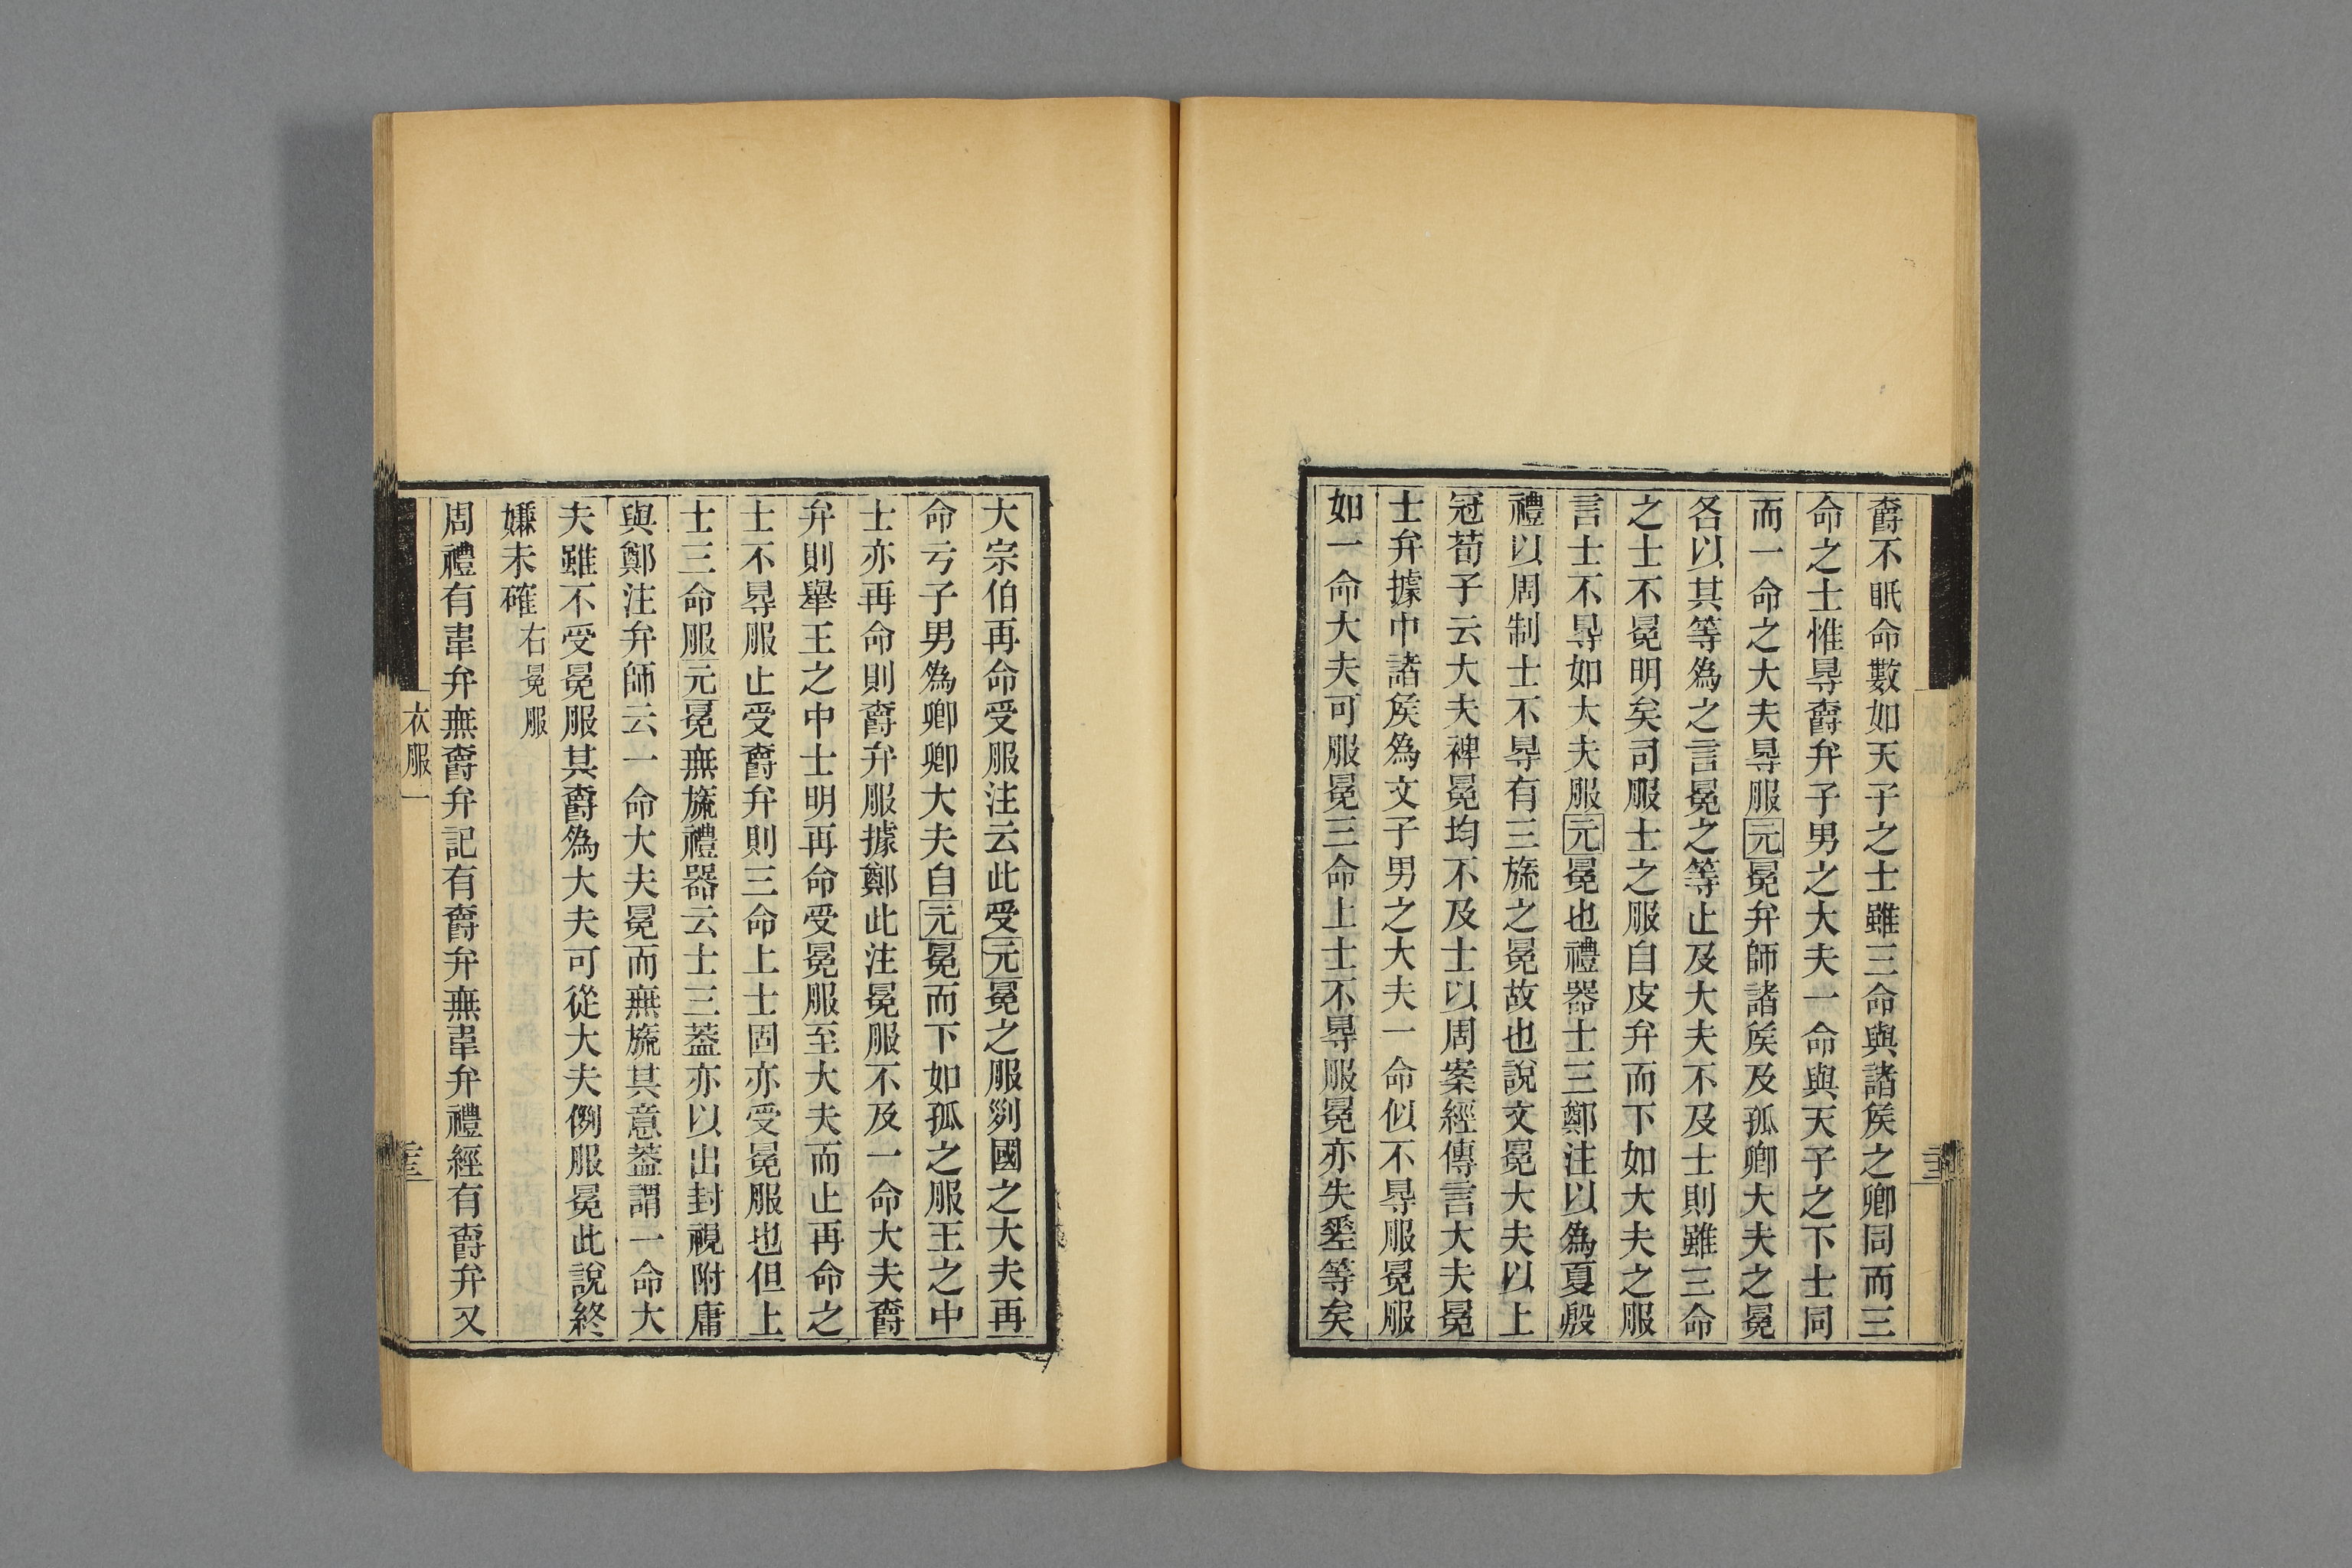 爵不眂命數如天子之士雖三命與諸矦之卿同而三
命之士惟㝵爵弁子男之大夫一命與天子之下士同
而一命之大夫㝵服元冕弁師諸矦及孤卿大夫之冕
各以其等爲之言冕之等止及大夫不及士則雖三命
之士不冕明矣司服士之服自皮弁而下如大夫之服
言士不㝵如大夫服元冕也禮器士三鄭注以爲夏殷
禮以周制士不㝵有三旒之冕故也說文冕大夫以上
冠荀子云大夫裨冕均不及士以周案經傳言大夫冕
士弁據中諸矦爲文子男之大夫一命似不㝵服冕服
如一命大夫可服冕三命上士不㝵服冕亦失等矣
大宗伯再命受服注云此受元冕之服列國之大夫再
命亏子男爲卿卿大夫自元冕而下如孤之服王之中
士亦再命則爵弁服據鄭此注冕服不及一命大夫爵
弁則舉王之中士明再命受冕服至大夫而止再命之
士不㝵服止受爵弁則三命上士固亦受冕服也但上
士三命服元冕無旒禮器云士三蓋亦以出封視附庸
與鄭注弁師云一命大夫冕而無旒其意蓋謂一命大
夫雖不受冕服其爵爲大夫可從大夫例服冕此說終
嫌未確右冕服
周禮有韋弁無爵弁記有爵弁無韋弁禮經有爵弁又
衣服一